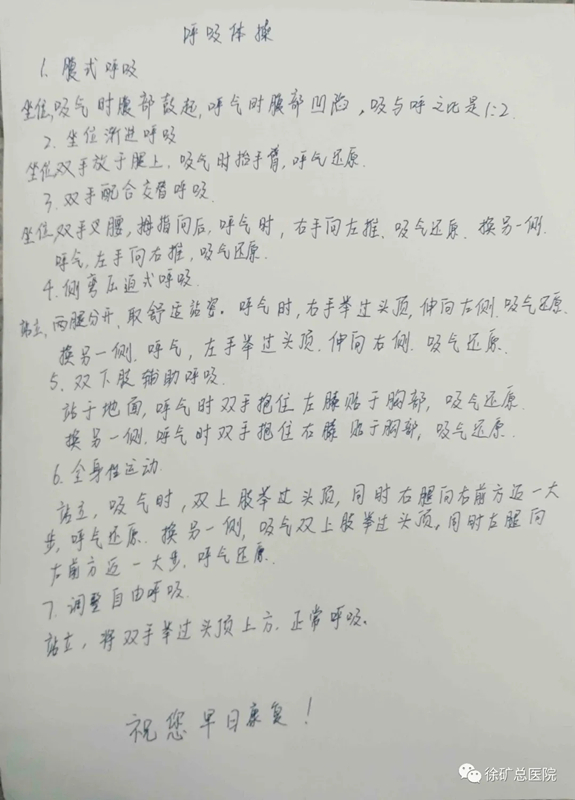 呼吸体操
1. 腹式呼吸
坐位,吸气时腹部鼓起,呼气时腹部凹陷,吸与呼之比是1:2.
2. 坐位渐进呼吸
坐位双手放于腿上,吸气时抬手臂,呼气还原.
3. 双手配合交替呼吸.
坐位双手叉腰,拇指向后,呼气时,右手向左推.吸气还原.换另一侧.
呼气,左手向右推,吸气还原.
4. 侧弯压迫式呼吸.
站立,两腿分开,取舒适站姿.呼气时,右手举过头顶,伸向左侧.吸气还原.
换另一侧.呼气,左手举过头顶.伸向右侧.吸气还原.
5. 双下肢辅助呼吸.
站于地面,呼气时双手抱住左膝贴于胸部,吸气还原.
换另一侧.呼气时双手抱住右膝贴于胸部,吸气还原.
6. 全身性运动.
站立,吸气时,双上肢举过头顶,同时右腿向右前方迈一大
步,呼气还原.换另一侧,吸气双上肢举过头顶,同时左腿向
左前方迈一大步.呼气还原.
7. 调整自由呼吸.
站立,将双手举过头顶上方.正常呼吸.
祝您早日康复!
徐矿总医院